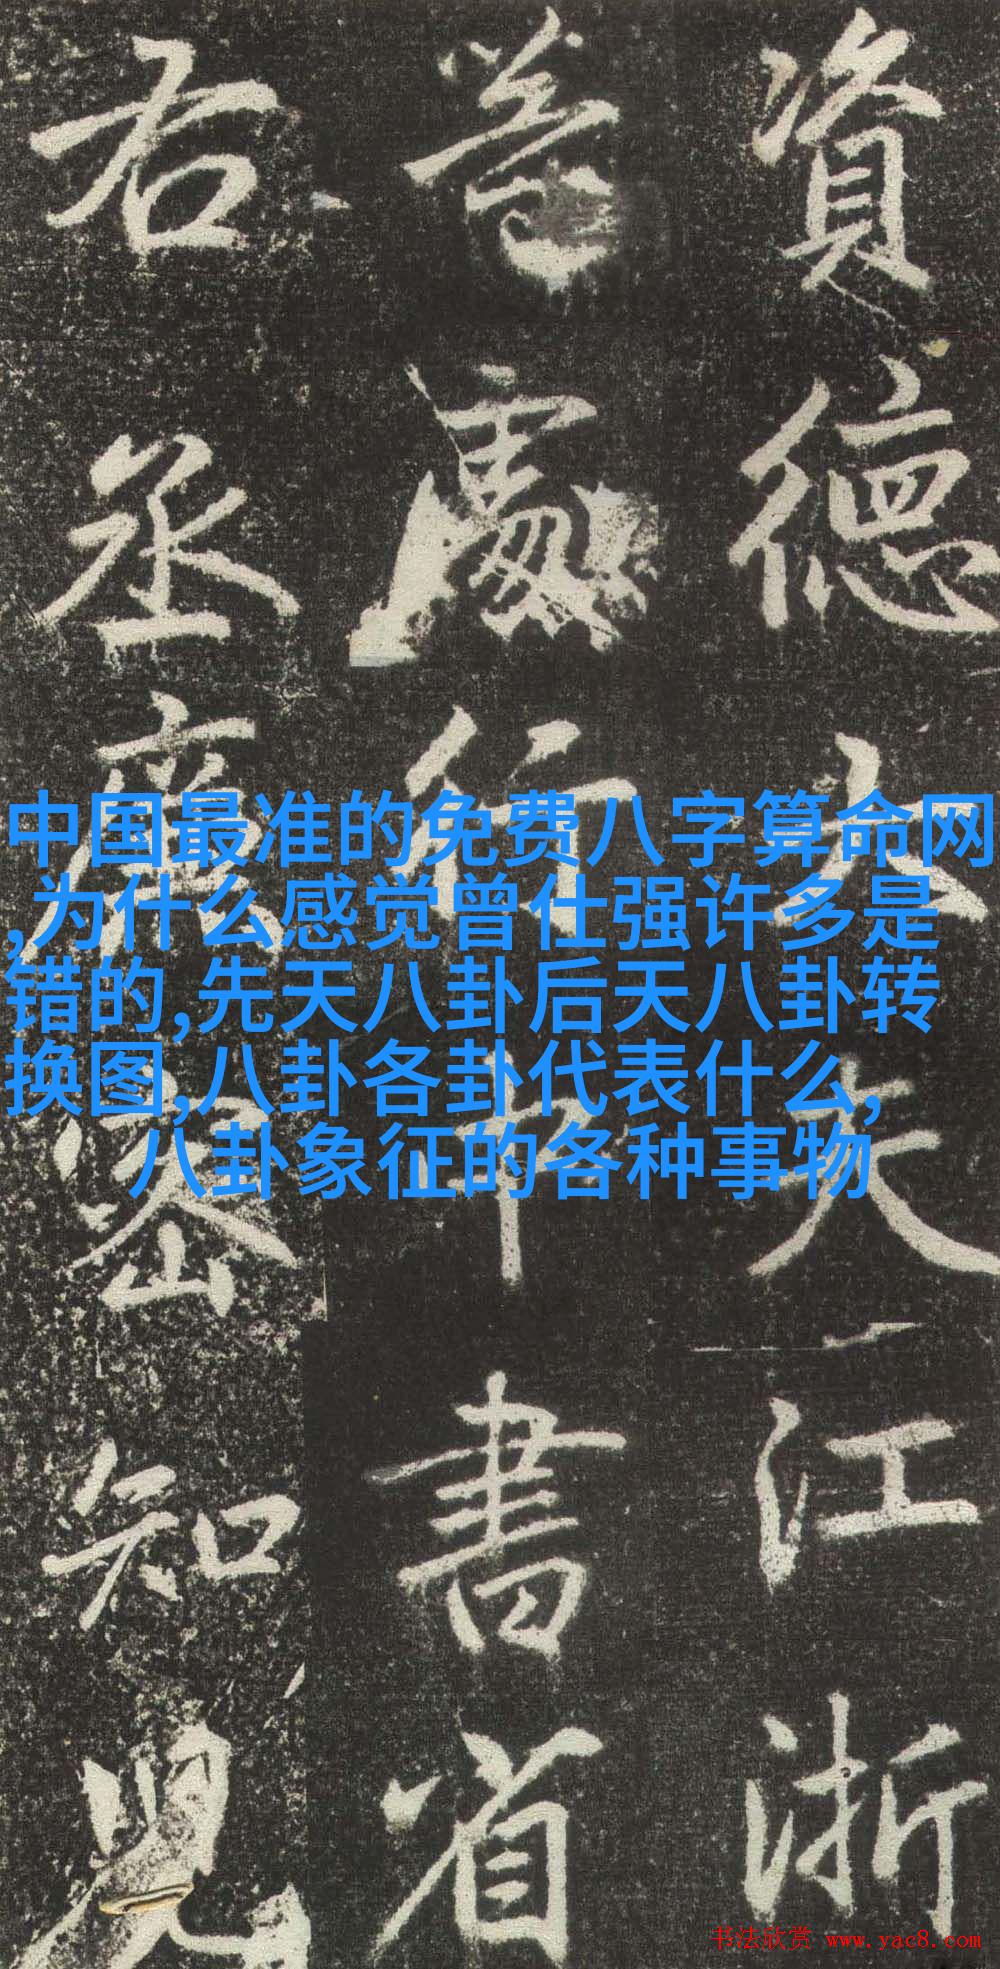 資德大夫江浙
等處行中書省
右丞廉密知兒
中国最准的免费八字算命网
,为什么感觉曾仕强许多是
错的,先天八卦后天八卦转
换图,八卦各卦代表什么,
八卦象征的各种事物
书法欣赏 www.yac8.com